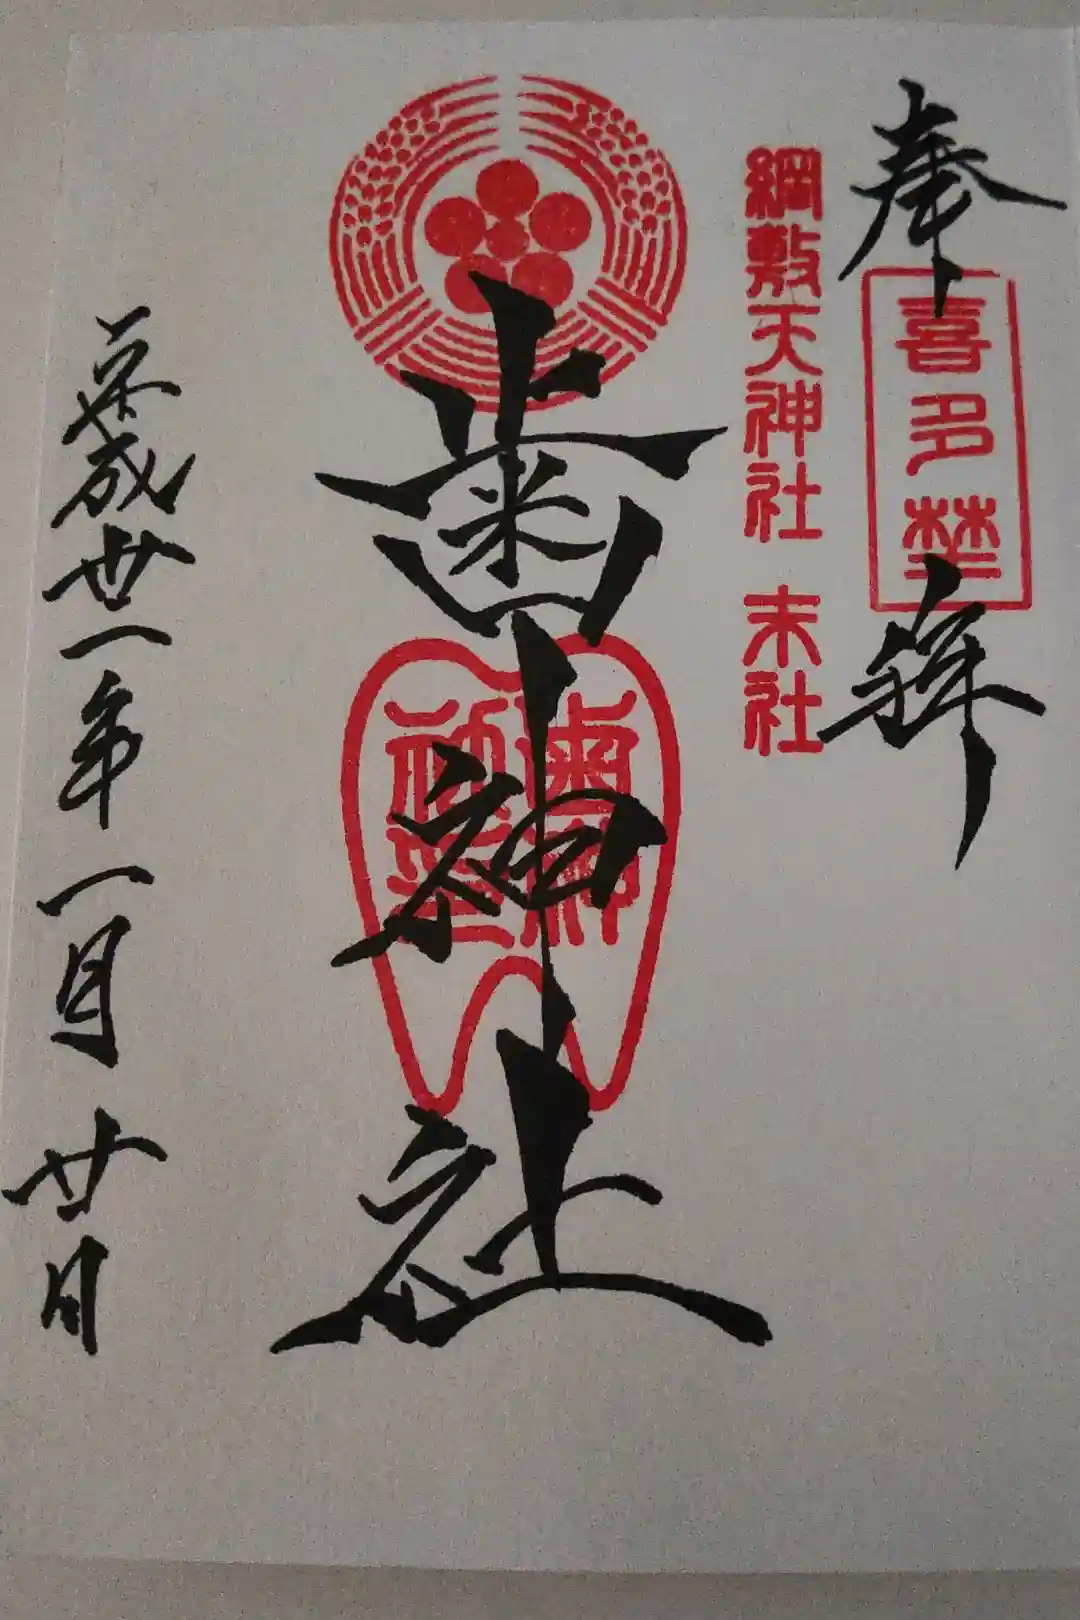 奉拝
喜多埜
綱敷天神社 末社
歯神社
平成丗一年一月廿日